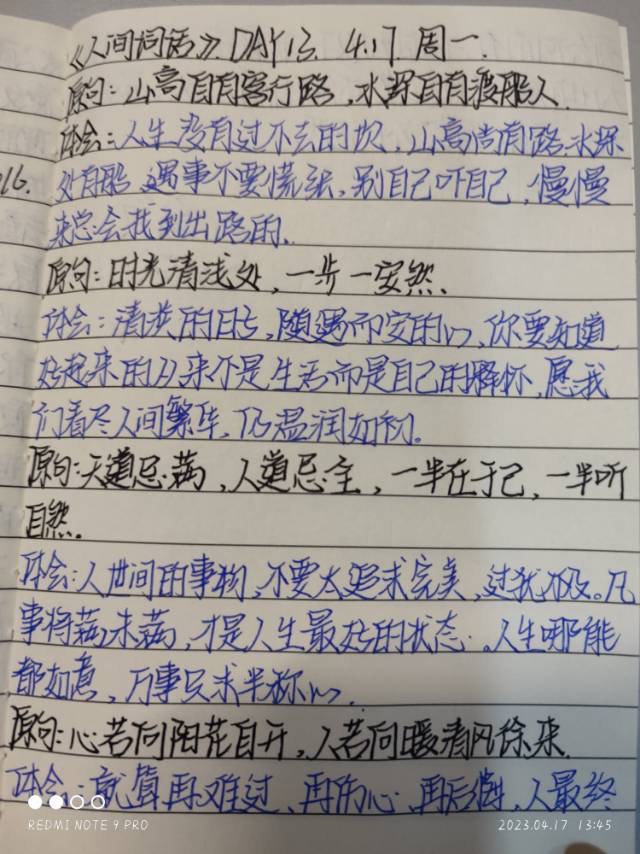 《人间词话》. DAY13. 4.17 周一.
原句：山高自有客行路，水深自有渡船人.
体会：人生没有过不去的坎，山高尚有路，水深
16.
处有船，遇事不要慌张，别自己吓自己，慢慢
来总会找到出路的.
原句：时光清浅处，一步一安然.
体会：清淡的日子，随遇而安的心，你要知道
好起来的从来不是生活而是自己的释怀，愿我
们看尽人间繁华，仍温润如初。
原句：天道忌满，人道忌全，一半在于己，一半听
自然.
体会：人世间的事物，不要太追求完美，过犹不及。凡
事将满未满，才是人生最好的状态。人生哪能
都如意，万事只求半称心.
原句：心若向阳花自开，人若向暖清风徐来.
体会：就算再难过，再伤心，再后悔，人最终
REDMI NOTE 9 PRO
2023.04.17 13:45